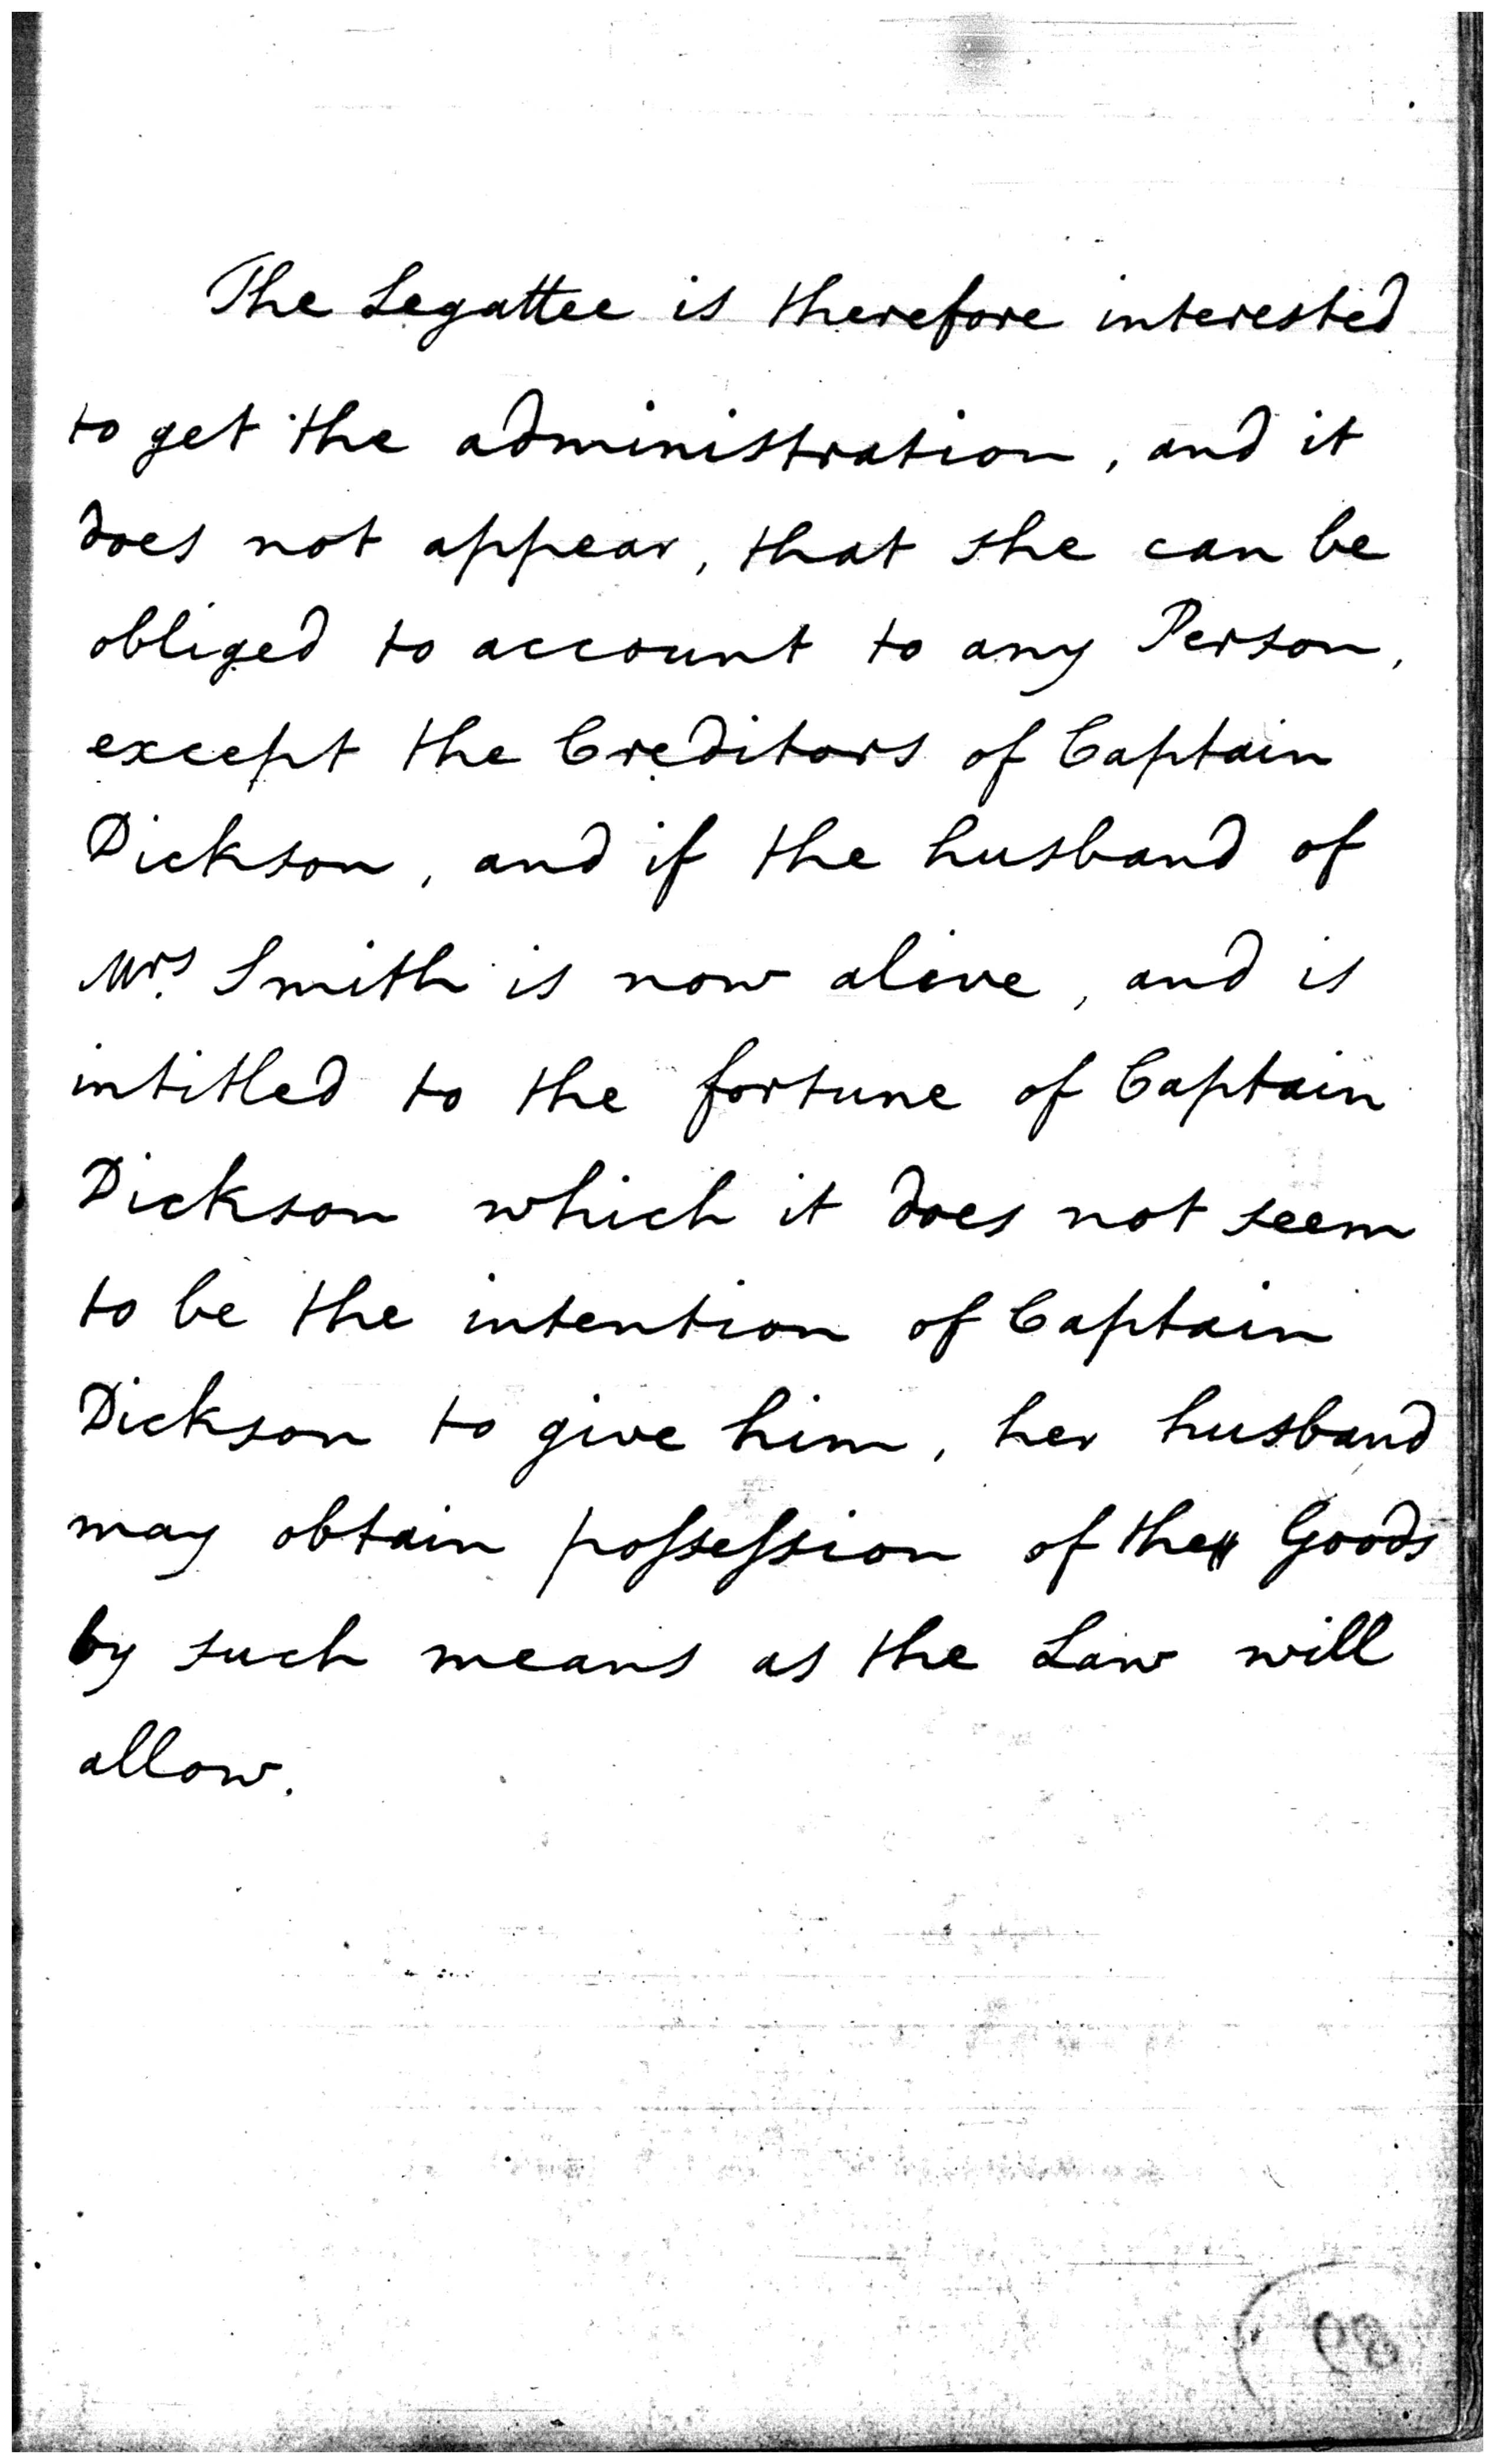 The Legattee is therefore interested
to get the administration, and it
does not appear, that she can be
obliged to account to any Person,
except the Creditors of Captain
Dickson, and if the husband of
Mrs. Smith is now alive, and is
intitled to the fortune of Captain
Dickson which it does not seem
to be the intention of Captain
Dickson to give him, her husband
may obtain possession of the Goods
by such means as the Law will
allow.